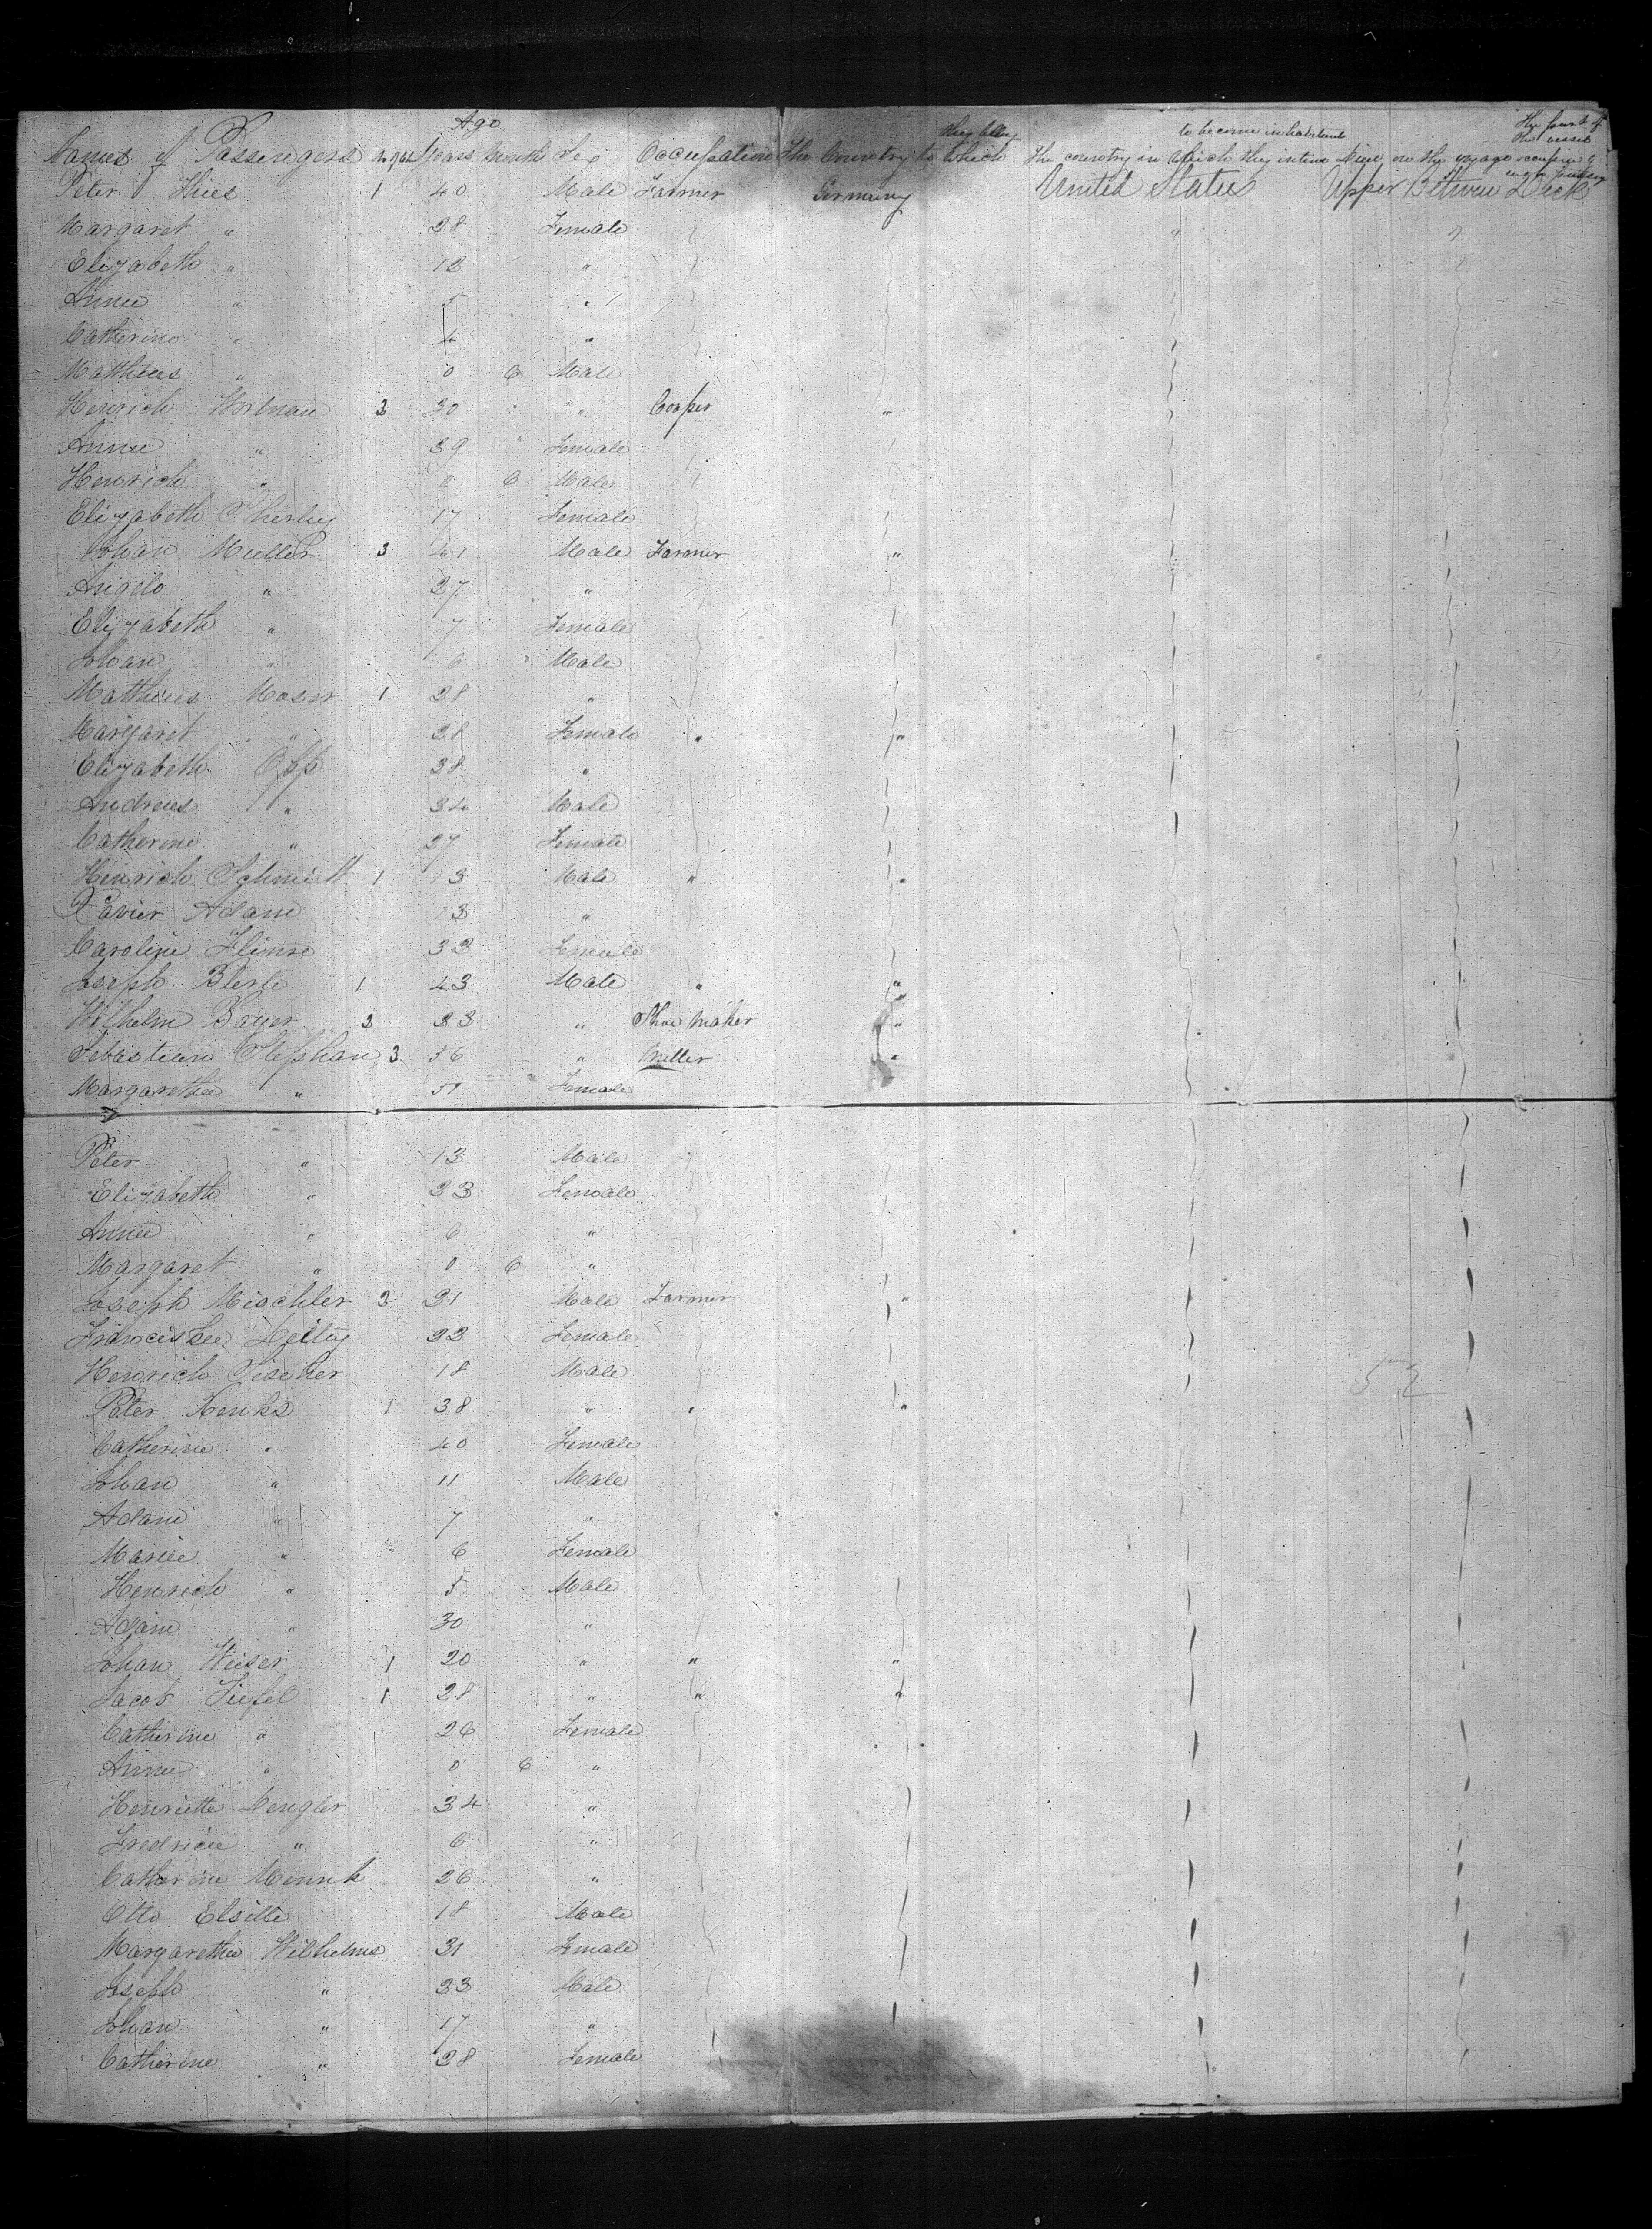 Age they belong to become inhabitants The part of the vessel
Names of Passengers Years Month Sex Occupation The Country to which The country in which they intend Died on the voyage occupied by
Peter Thies 1 40 Male Farmer Germany United States Upper Between Deck
Margaret " 38 Female " "
Elizabeth " 18 "
Annee " 5 "
Catherine " 4 "
Matthias " 0 6 Male
Henrich 3 30 " Cooper "
Annee " 39 Female
Henrich " 0 6 Male
Elizabeth 17 Female
Johan Muller 3 41 Male Farmer "
Angelo " 27 "
Elizabeth " 7 Female
Johan " 6 Male
Matthias Moser 1 28 "
Margaret " 28 Female " "
Elizabeth Opp 38 "
Andreas " 34 Male
Catherine " 27 Female
Heinrich Schmidt 1 13 Male " "
Xavier Adam 13 "
Caroline 33 Female
Joseph Berle 1 43 Male " "
Wilhelm Bayer 3 33 " Shoe maker "
Sebastian Stephan 3 56 " Miller "
Margaretha " 51 Female
Peter " 13 Male
Elizabeth " 33 Female
Annee " 6 "
Margaret " 0 6 "
Joseph Mischler 3 31 Male Farmer "
Franciskee 33 Female
Henrich Fischer 18 Male
Peter Henks 1 38 " " "
Catherine " 40 Female 52
Johan " 11 Male
Adam " 7 "
Mariee " 6 Female
Henrich " 5 Male
Adam " 30 "
Johan Weiser 1 20 " " "
Jacob Tiefel 1 28 " " "
Catherine " 26 Female
Annee " 0 6 "
Henriette Dengler 34 "
Fredricee " 6 "
Catharine Munk 26 "
Otto Elsitte 18 Male
Margaretha Wilhelms 31 Female
Joseph " 33 Male
Johan " 17 "
Catherine " 38 Female